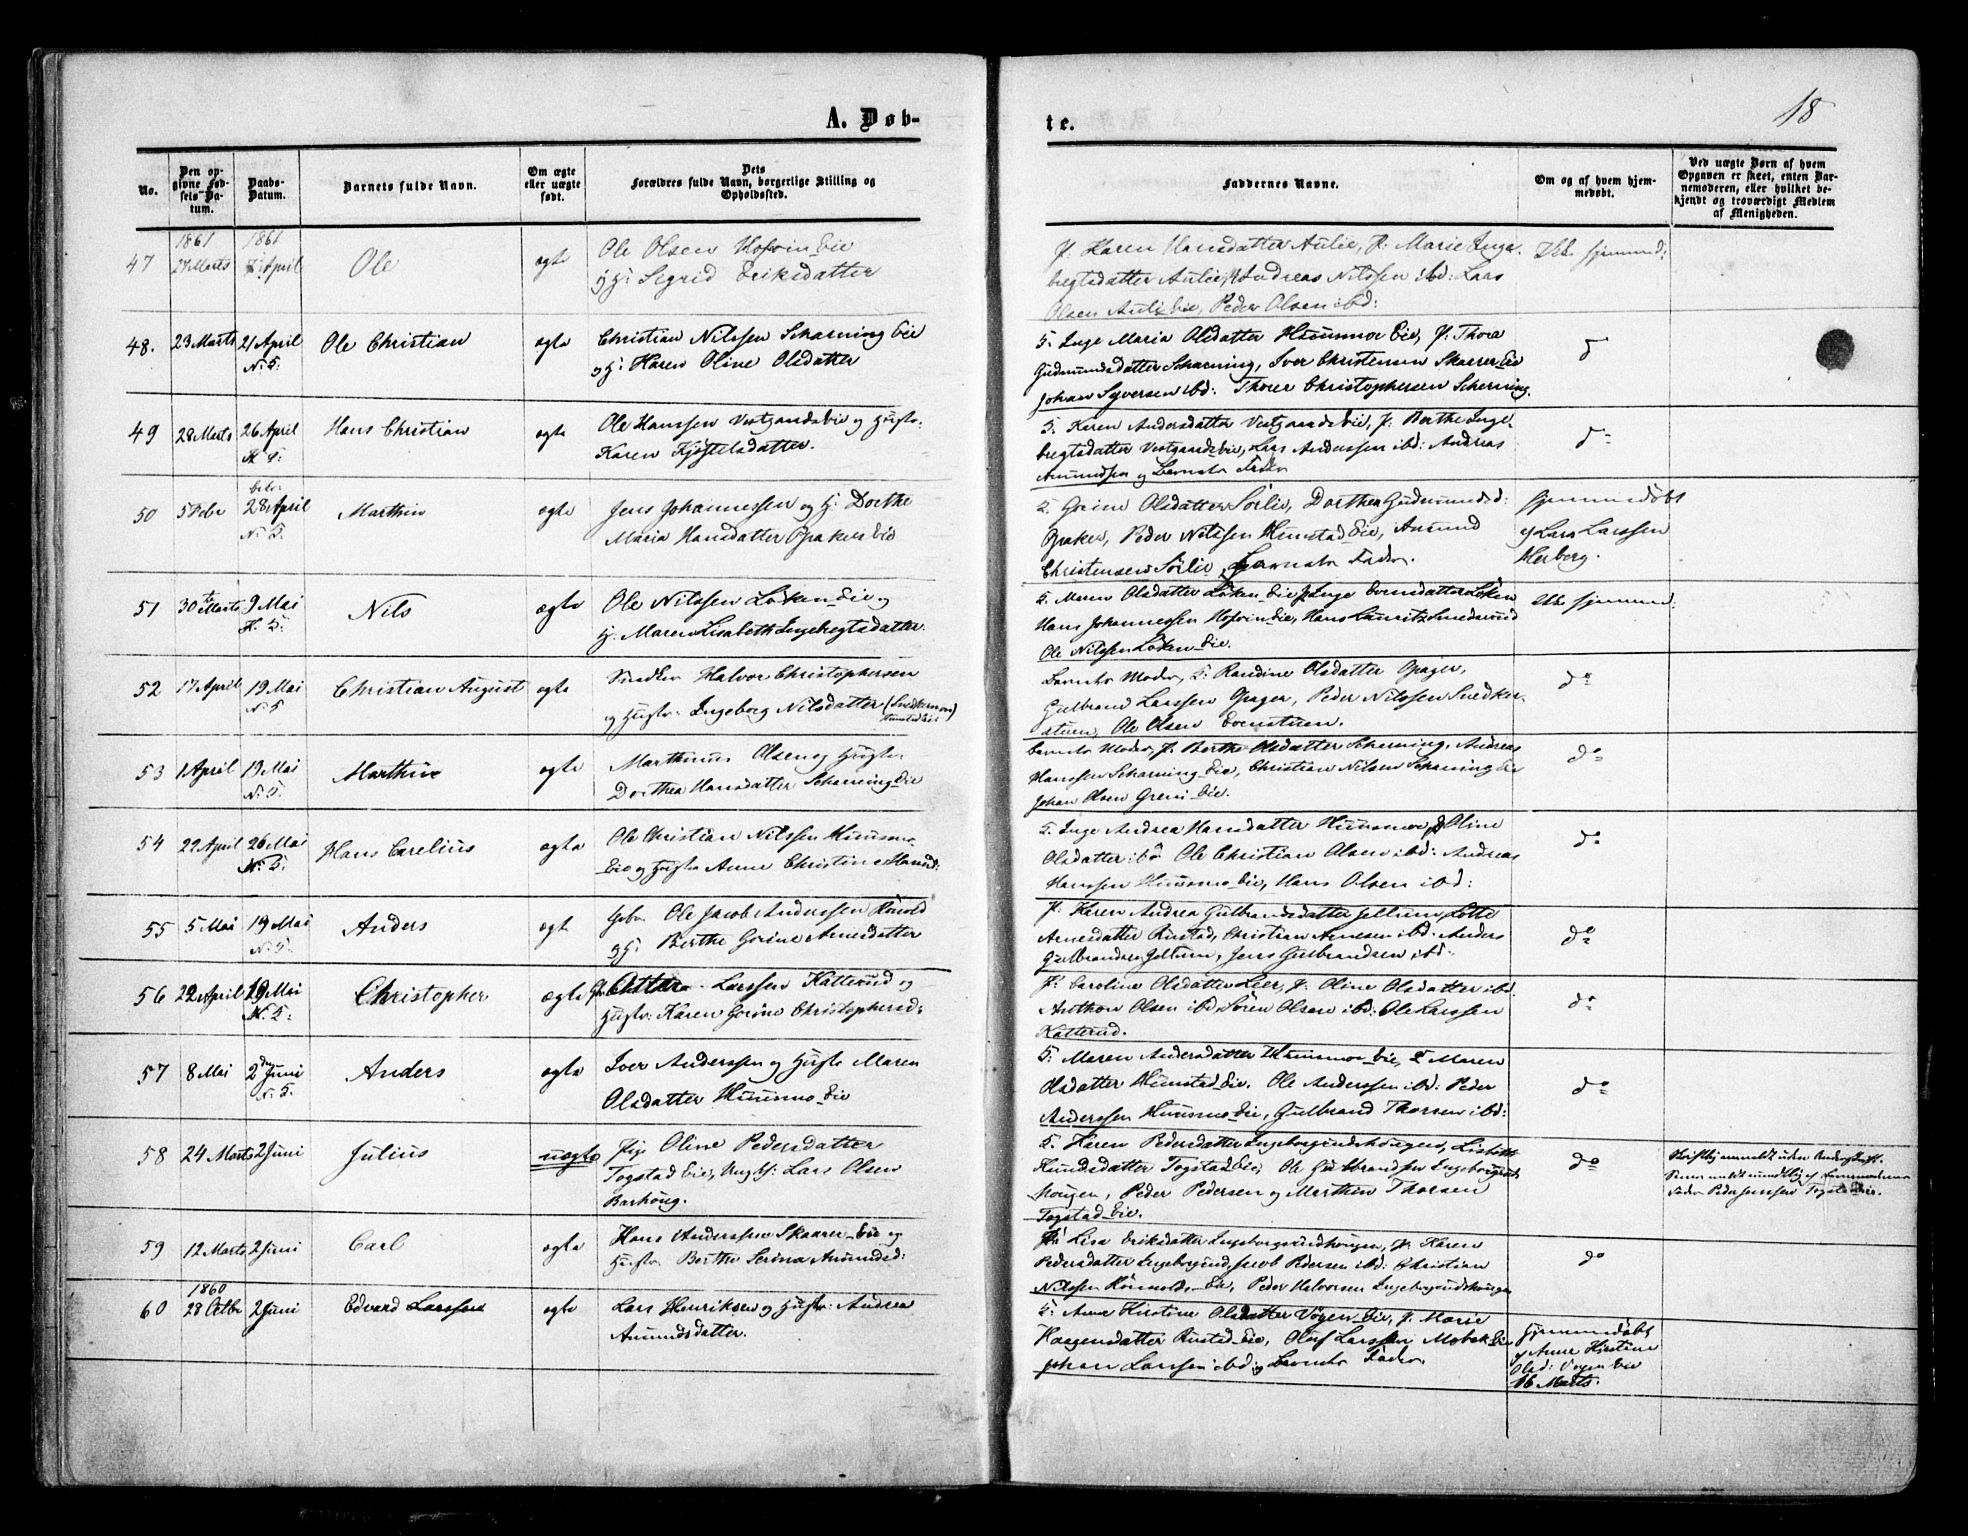 18
A. Døb-
te.
No.
Den op-
givne Fød-
sels Da-
tum.
Daabs-
Datum.
Barnets fulde Navn.
Om ægte
eller uægte
født.
Dets
Forældres fulde Navn, borgerlige Stilling og
Opholdssted.
Faddernes Navne.
Om og af hvem hjem-
medøbt.
Ved uægte Børn af hvem
Opgaven er skeet, enten Bar-
nemoderen, eller hvilket be-
kjendt og troværdigt Medlem
af Menigheden.
1861 1861
47 27 Marts April Ole ægte Ole Olsen Hofvin Eie
Hj: Sigrid Eriksdatter
P: Karen Hansdatter Aulie, P: Marie Inge-
bregtsdatter Aulie, Andreas Nilssen ibd: Lars
Olsen Aulie Eie, Peder Olsen ibd:
48. 23 Marts 21 April Ole Christian ægte Christian Nilssen Scharning Eie
N. S: og Hj: Karen Oline Olsdatter
G. Inge Maria Olsdatter Huusmoe Eie, P: Thora
Gudmundsdatter Scharning, Iver Christensen Skarrer Eie
Johan Syversen ibd: Thorer Christophersen Scherning.
49 28 Marts 26 April Hans Christian ægte Ole Hanssen Vestgaardseie og Hustr:
Karen Kjøstelsdatter.
G. Karen Andersdatter Vestgaardseie, P: Berthe Inge-
bregtsdatter Vestgaardseie, Lars Anderssen ibd: Andreas
Amundsen og Barnets Fader
50 5 Febr 28 April Marthin ægte Jens Johannessen og Hj: Dorthe
N. S. Maria Hansdatter Opaker Eie
G. Gorine Olsdatter Sörlie, Dorthea Gudmundsd:
Opaker, Peder Nilssen Huustad Eie, Amund
Christensen Sörlie, Barnets Fader.
hjemmedøbt
af Lars Larssen
Herberg.
51 30te Marts 9 Mai Nils ægte Ole Nilssen Löken Eie og
Hj: Maren Lisabeth Ingebregtsdatter.
G. Maren Olsdatter Löken Eie, P. Inge Evensdatter Löken
Hans Johannessen Hofvin Eie, Hans Lauritz Smedsrud
Ole Nilssen Löken Eie.
52 17 April 19 Mai Christian August ægte Halvor Christophersen
N. S og Hustr: Ingeborg Nilsdatter
Barnets Moder, G. Randine Olsdatter Opager,
Gulbrand Larssen Opager, Peder Nilssen Snedker-
stuen, Ole Olsen Evenstuen.
do
53 1 April 19 Mai Marthin ægte Marthinus Olsen og Hustr:
N. S. Dorthea Hansdatter Scharning Eie
Barnets Moder, P. Berthe Olsdatter Scharning, Andreas
Hanssen Scharning Eie, Christian Nilsen Scharning Eie
Johan Olsen Greni Eie.
do
54 29 April 26 Mai Hans Carelius ægte Ole Christian Nilssen Huusmo-
N. S. Eie og Hustr Anne Christine Hansd:
G. Inge Andrea Hansdatter Huusmoe, P Oline
Olsdatter ibd Ole Christian Olsen ibd: Andreas
Hanssen Huusmo Eie, Hans Olsen ibd:
do
55 5 Mai 19 Mai Anders ægte Gbr Ole Jacob Anderssen
N. S. Hj: Berthe Gorine Arnesdatter
P: Karen Andrea Gulbrandsdatter Jellum, Lotte
Arnesdatter Rustad, Christian Arnesen ibd: Anders
Gulbrandsen Jellum, Jens Gulbrandsen ibd.
do
56 22 April 19 Mai Christopher ægte Larssen Katterud og
N. S: Hustr: Karen Gorine Christophersd:
P: Caroline Olsdatter Leer, P: Oline Olsdatter ibd.
Anthon Olsen ibd, Sören Olsen ibd: Ole Larssen
Katterud.
do
57 8 Mai 2 Juni Anders ægte Iver Anderssen og Hustr Maren
N. S. Olsdatter Huusmo Eie
G: Maren Andersdatter Huusmoe Eie, P Maren
Olsdatter Huustad Eie. Ole Anderssen ibd: Peder
Anderssen Huusmo Eie, Gulbrand Thorsen ibd:
do
58 24 Marts 2 Juni Julius uægte Pige Oline Pedersdatter
Togstad Eie, Ungkf: Lars Olsen
Barhoug.
G. Karen Pedersdatter Lisbeth
Hansdatter Togstad Eie, Ole Gulbrandsen
Hougen, Peder Pedersen og Marthin Thorsen
Togstad Eie.
do
59 12 Marts 2 Juni Carl ægte Hans Anderssen Skaarer Eie og
Hustr Berthe Serina Amundsd:
Lisa Eriksdatter P. Karen
Pedersdatter Jacob Pedersen ibd: Christian
Nilssen Eie, Peder Halvorsen
do
1860
60 28 Octbr 2 Juni Edvard Larssen ægte Lars Henriksen og Hustr: Andrea
Amundsdatter.
G: Anne Kirstine Olsdatter Vøyen Eie, P. Marie
Haagensdatter Rustad Eie, Oluf Larssen Eie
Johan Larssen ibd og Barnets Fader.
hjemmedøbt
af Anne Kirstine
Olsd: Vøyen Eie
16 Marts.